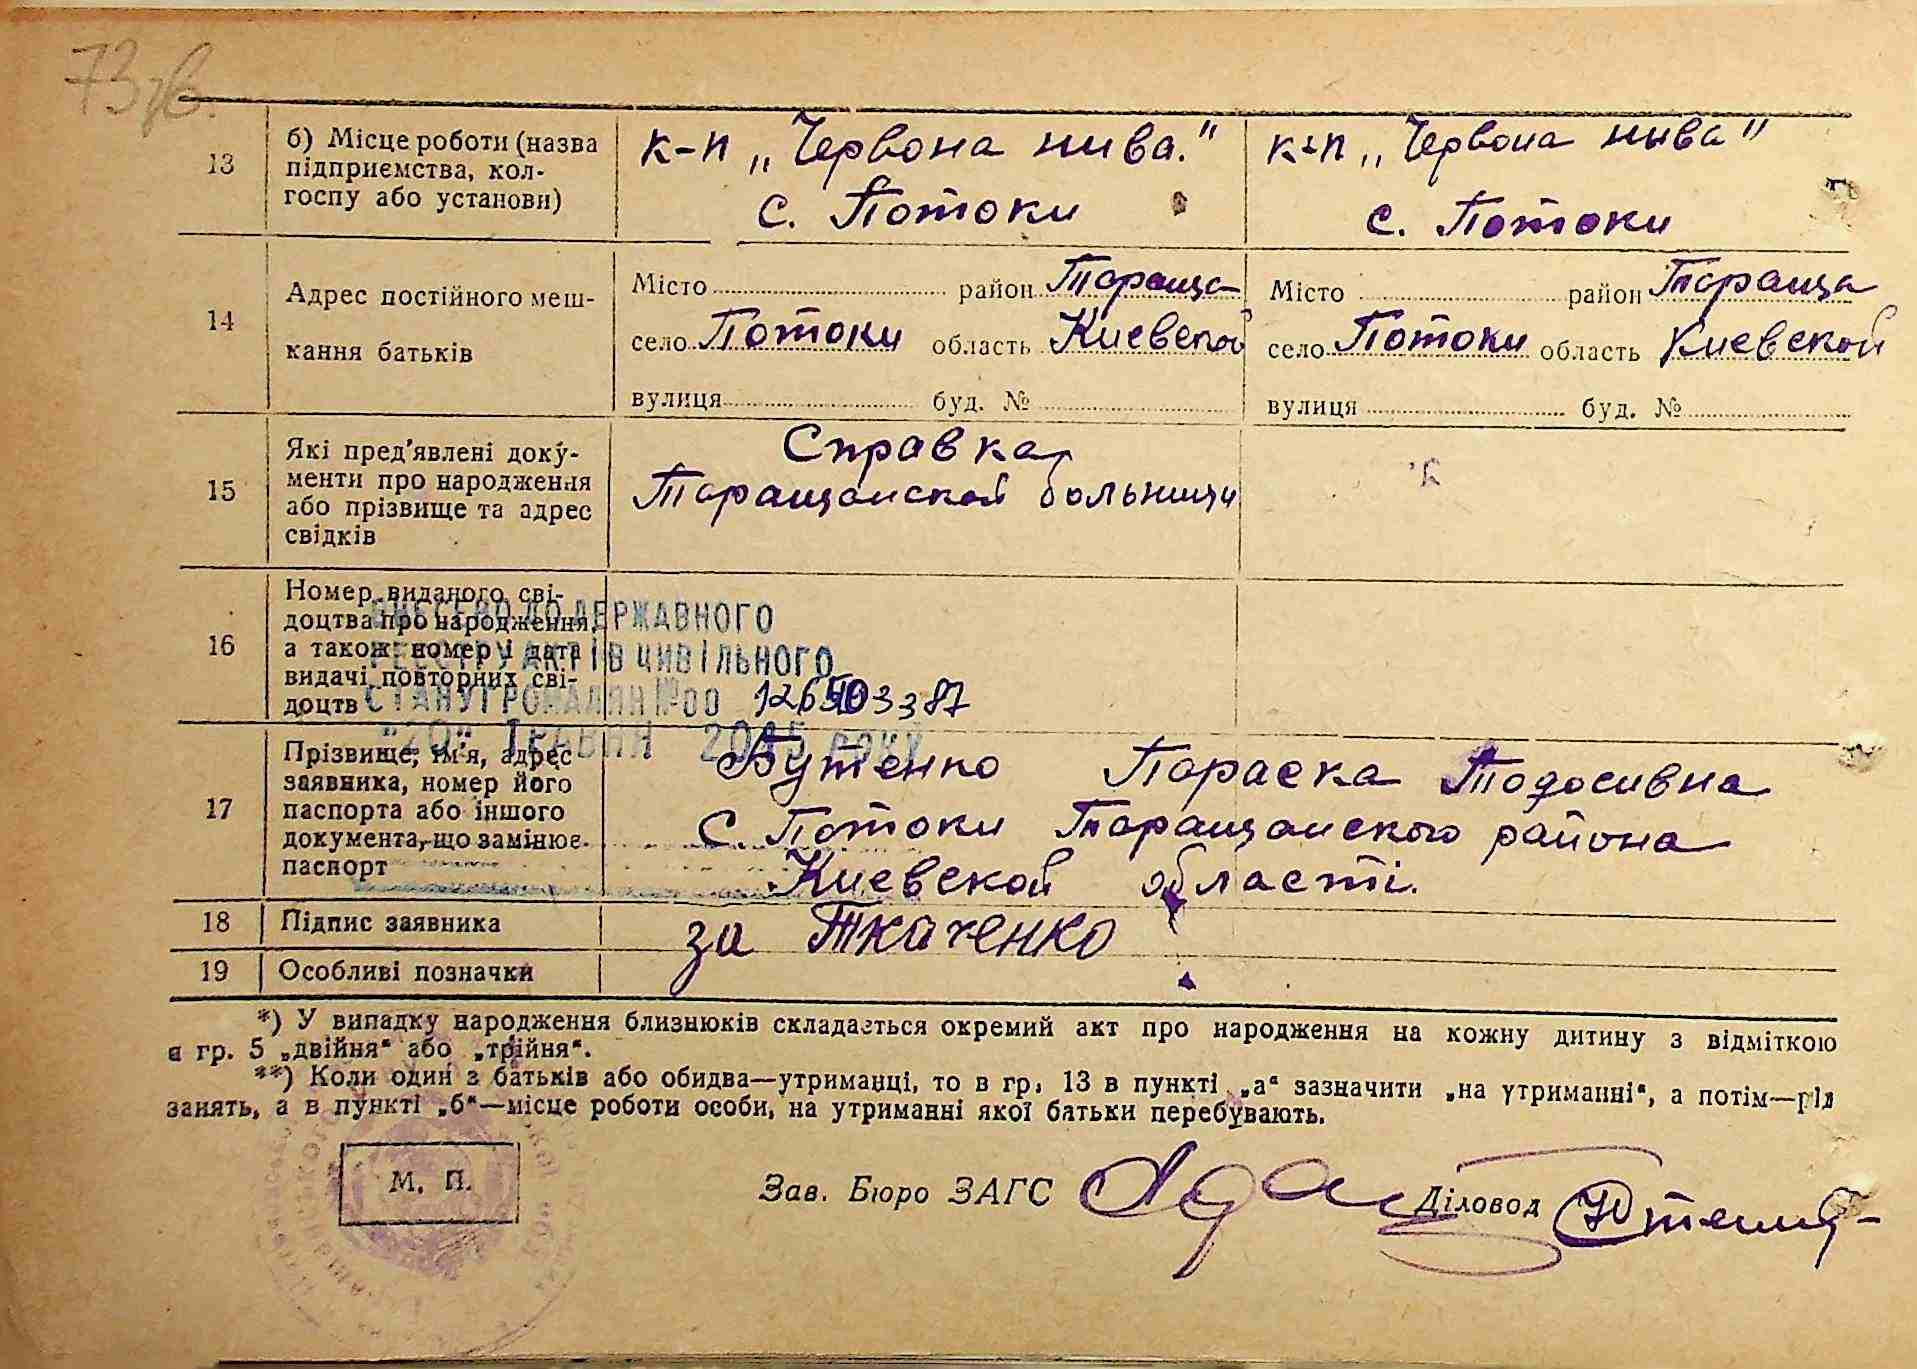 73 зв.
13
б) Місце роботи (назва
підприємства, кол-
госпу або установи)
к-п „Червона нива."
с. Потоки
к-п „Червона нива"
с. Потоки
14
Адрес постійного меш-
кання батьків
Місто район Тараща
село Потоки область Киевской
вулиця буд. №
Місто район Тараща
село Потоки область Киевской
вулиця буд. №
15
Які пред'явлені доку-
менти про народження
або прізвище та адрес
свідків
Справка
Таращанской больници
16
Номер виданого сві-
доцтва про народження,
а також номер і дата
видачі повторних сві-
доцтв
ВНЕСЕНО ДО ДЕРЖАВНОГО
РЕЄСТРУ АКТІВ ЦИВІЛЬНОГО
СТАНУ ГРОМАДЯН №00
"20" ТРАВНЯ РОКУ
17
Прізвище, ім'я, адрес
заявника, номер його
паспорта або іншого
документа, що замінює
паспорт
Бутенко Параска Тодосивна
С. Потоки Таращанского района
Киевской області.
18
Підпис заявника
за Ткаченко
19
Особливі позначки
*) У випадку народження близнюків складається окремий акт про народження на кожну дитину з відміткою
в гр. 5 „двійня" або „трійня".
**) Коли один з батьків або обидва—утриманці, то в гр. 13 в пункті „а" зазначити „на утриманні", а потім—рід
занять, а в пункті „б"—місце роботи особи, на утриманні якої батьки перебувають.
М. П.
Зав. Бюро ЗАГС
Діловод